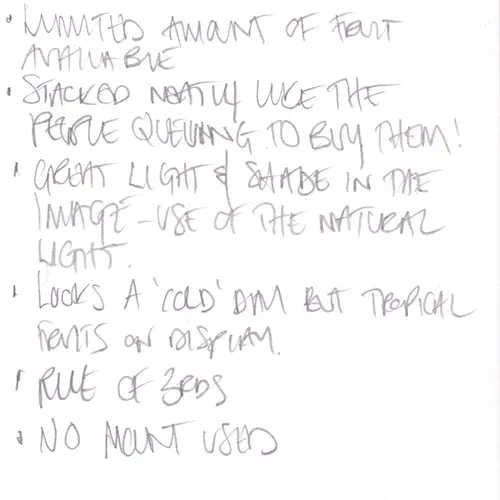 • LIMITED AMOUNT OF FRUIT
AVAILABLE
• STACKED NEATLY LIKE THE
PEOPLE QUEUING TO BUY THEM!
• GREAT LIGHT & SHADE IN THE
IMAGE - USE OF THE NATURAL
LIGHT.
• LOOKS A 'COLD' DAY BUT TROPICAL
FRUITS ON DISPLAY.
• RULE OF 3RDS
• NO MOUNT USED